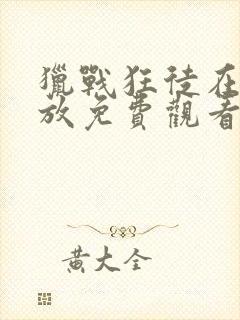 獵戰狂徒在
放免費觀看
黃大全